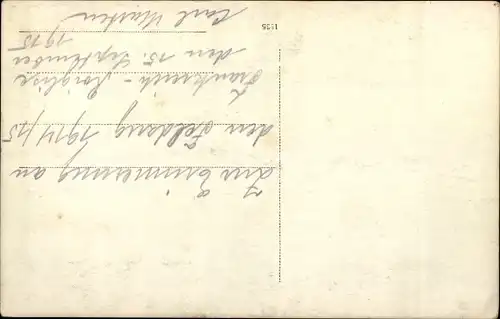 Zur Erinnerung an
den Feldzug 1914/15
Frankreich - Roiglise
den 15. September
1915
Carl
1535